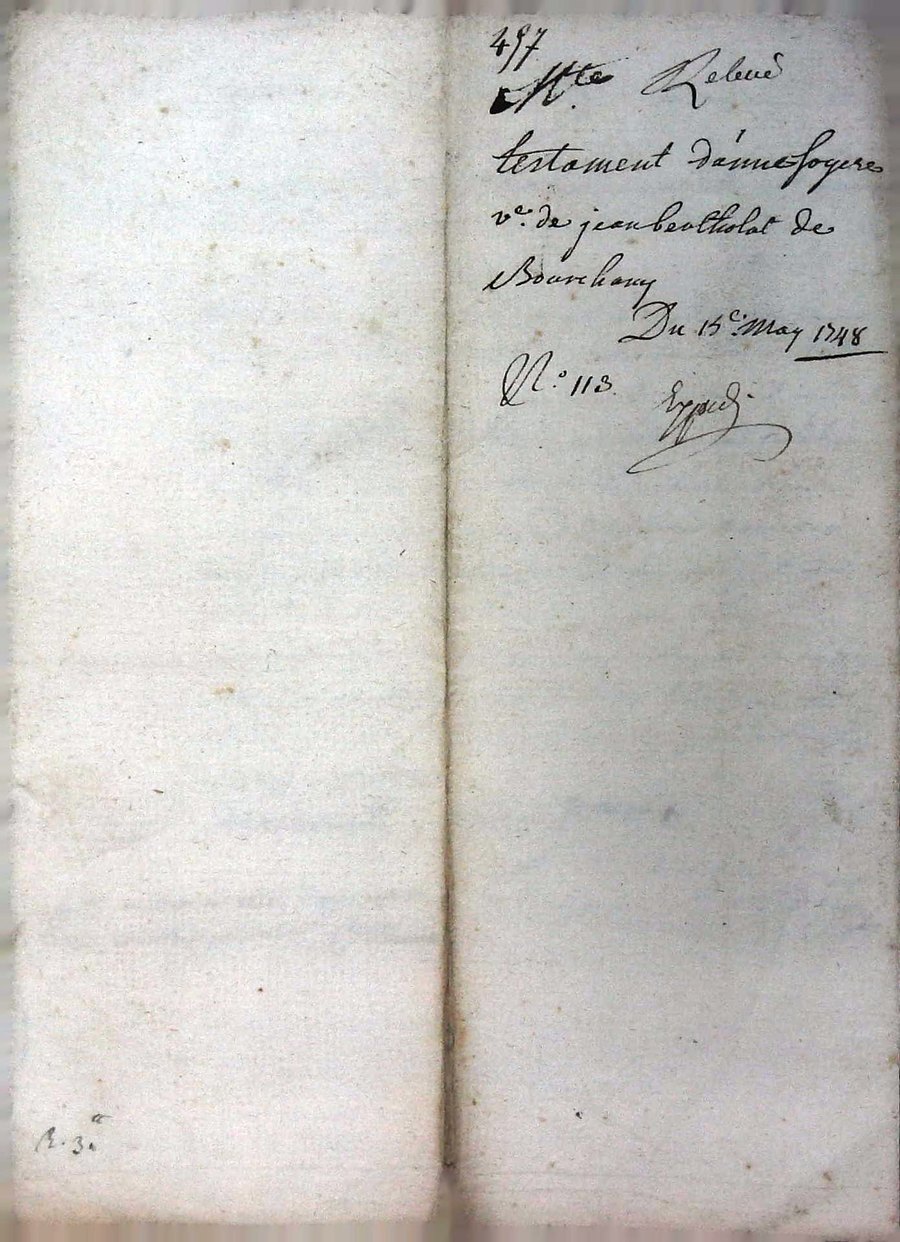 497
Mte Relevé
testament d'anne fogere
ve. de jean bertholat de
Bourchany
Du 15e. May 1748
N.° 113.
Expedi.
R. 3.tt